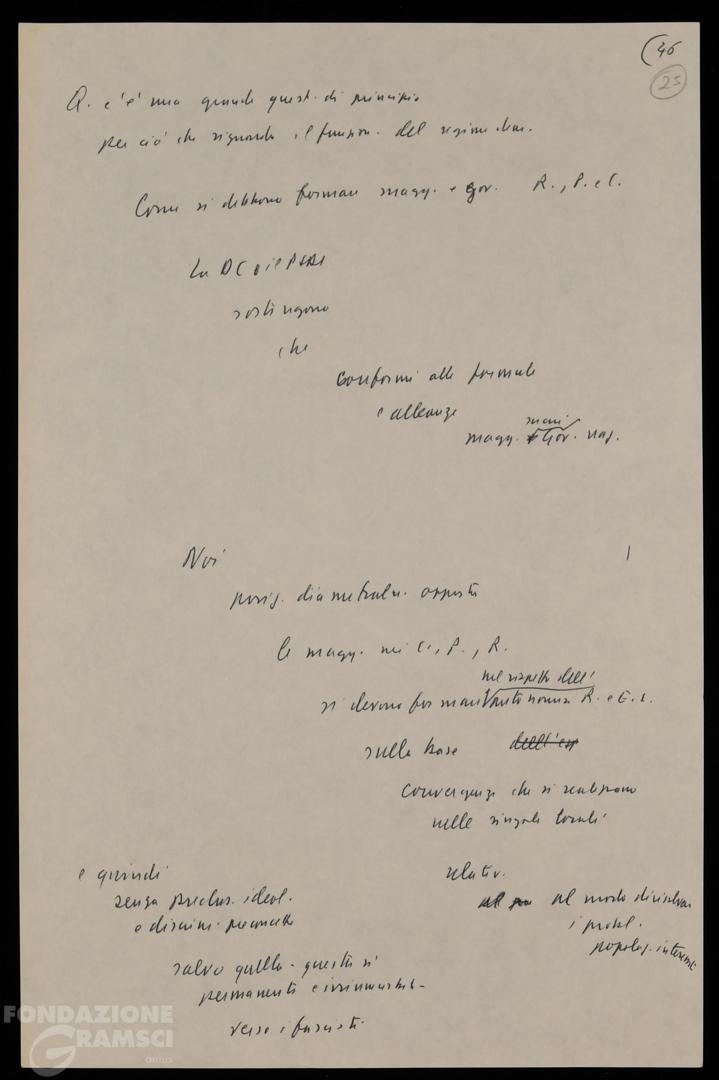 (46
25
Q. c'è una grande quest. di principio
per ciò che riguarda il funzion. del regime dem.
Come si debbono formare magg. e gov. R., P. e C.
La DC e il PSDI
sostengono
che
conformi alle formule
e alleanze
magg. Gov. naz.
Noi
posiz. diametralm. opposta
le magg. nei C., P., R.
nel rispetto dell'
si devono formare autonomia R. e E. L.
sulla base
convergenze che si realizzano
nelle singole località
e quindi
relativ.
senza preclus. ideol.
al modo di risolvere
e discrim. preconcette
i probl.
popolaz. interessate
salvo quella - questa sì
permanente e irrinunciab. -
verso i fascisti
FONDAZIONE
GRAMSCI
onlus